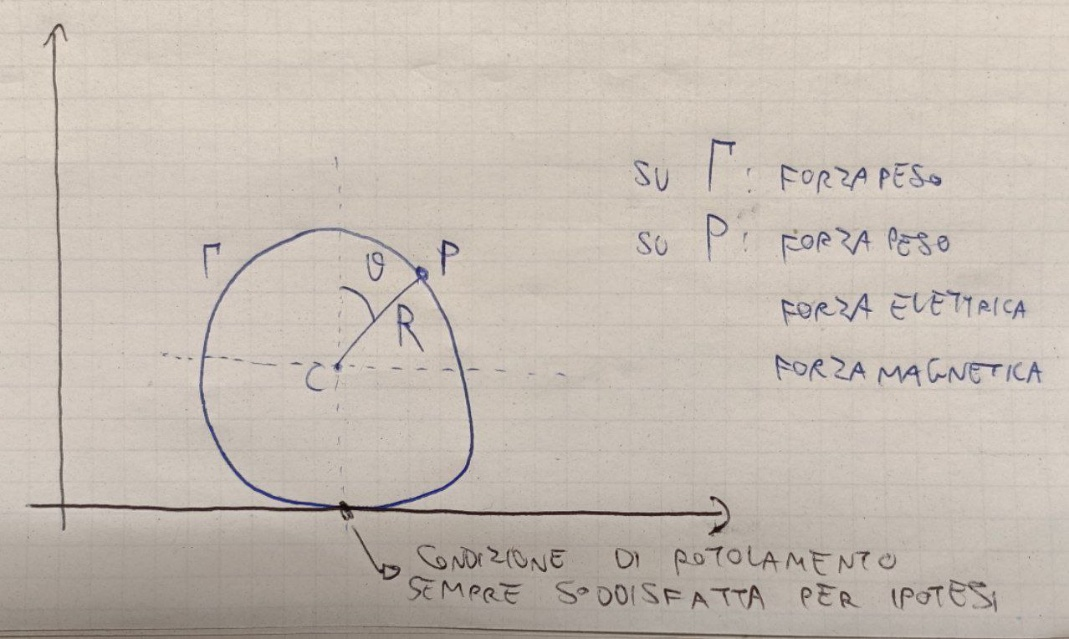 SU Γ: FORZA PESO
SU P: FORZA PESO
FORZA ELETTRICA
FORZA MAGNETICA
Γ
ϑ
P
R
C
CONDIZIONE DI ROTOLAMENTO
SEMPRE SODDISFATTA PER IPOTESI